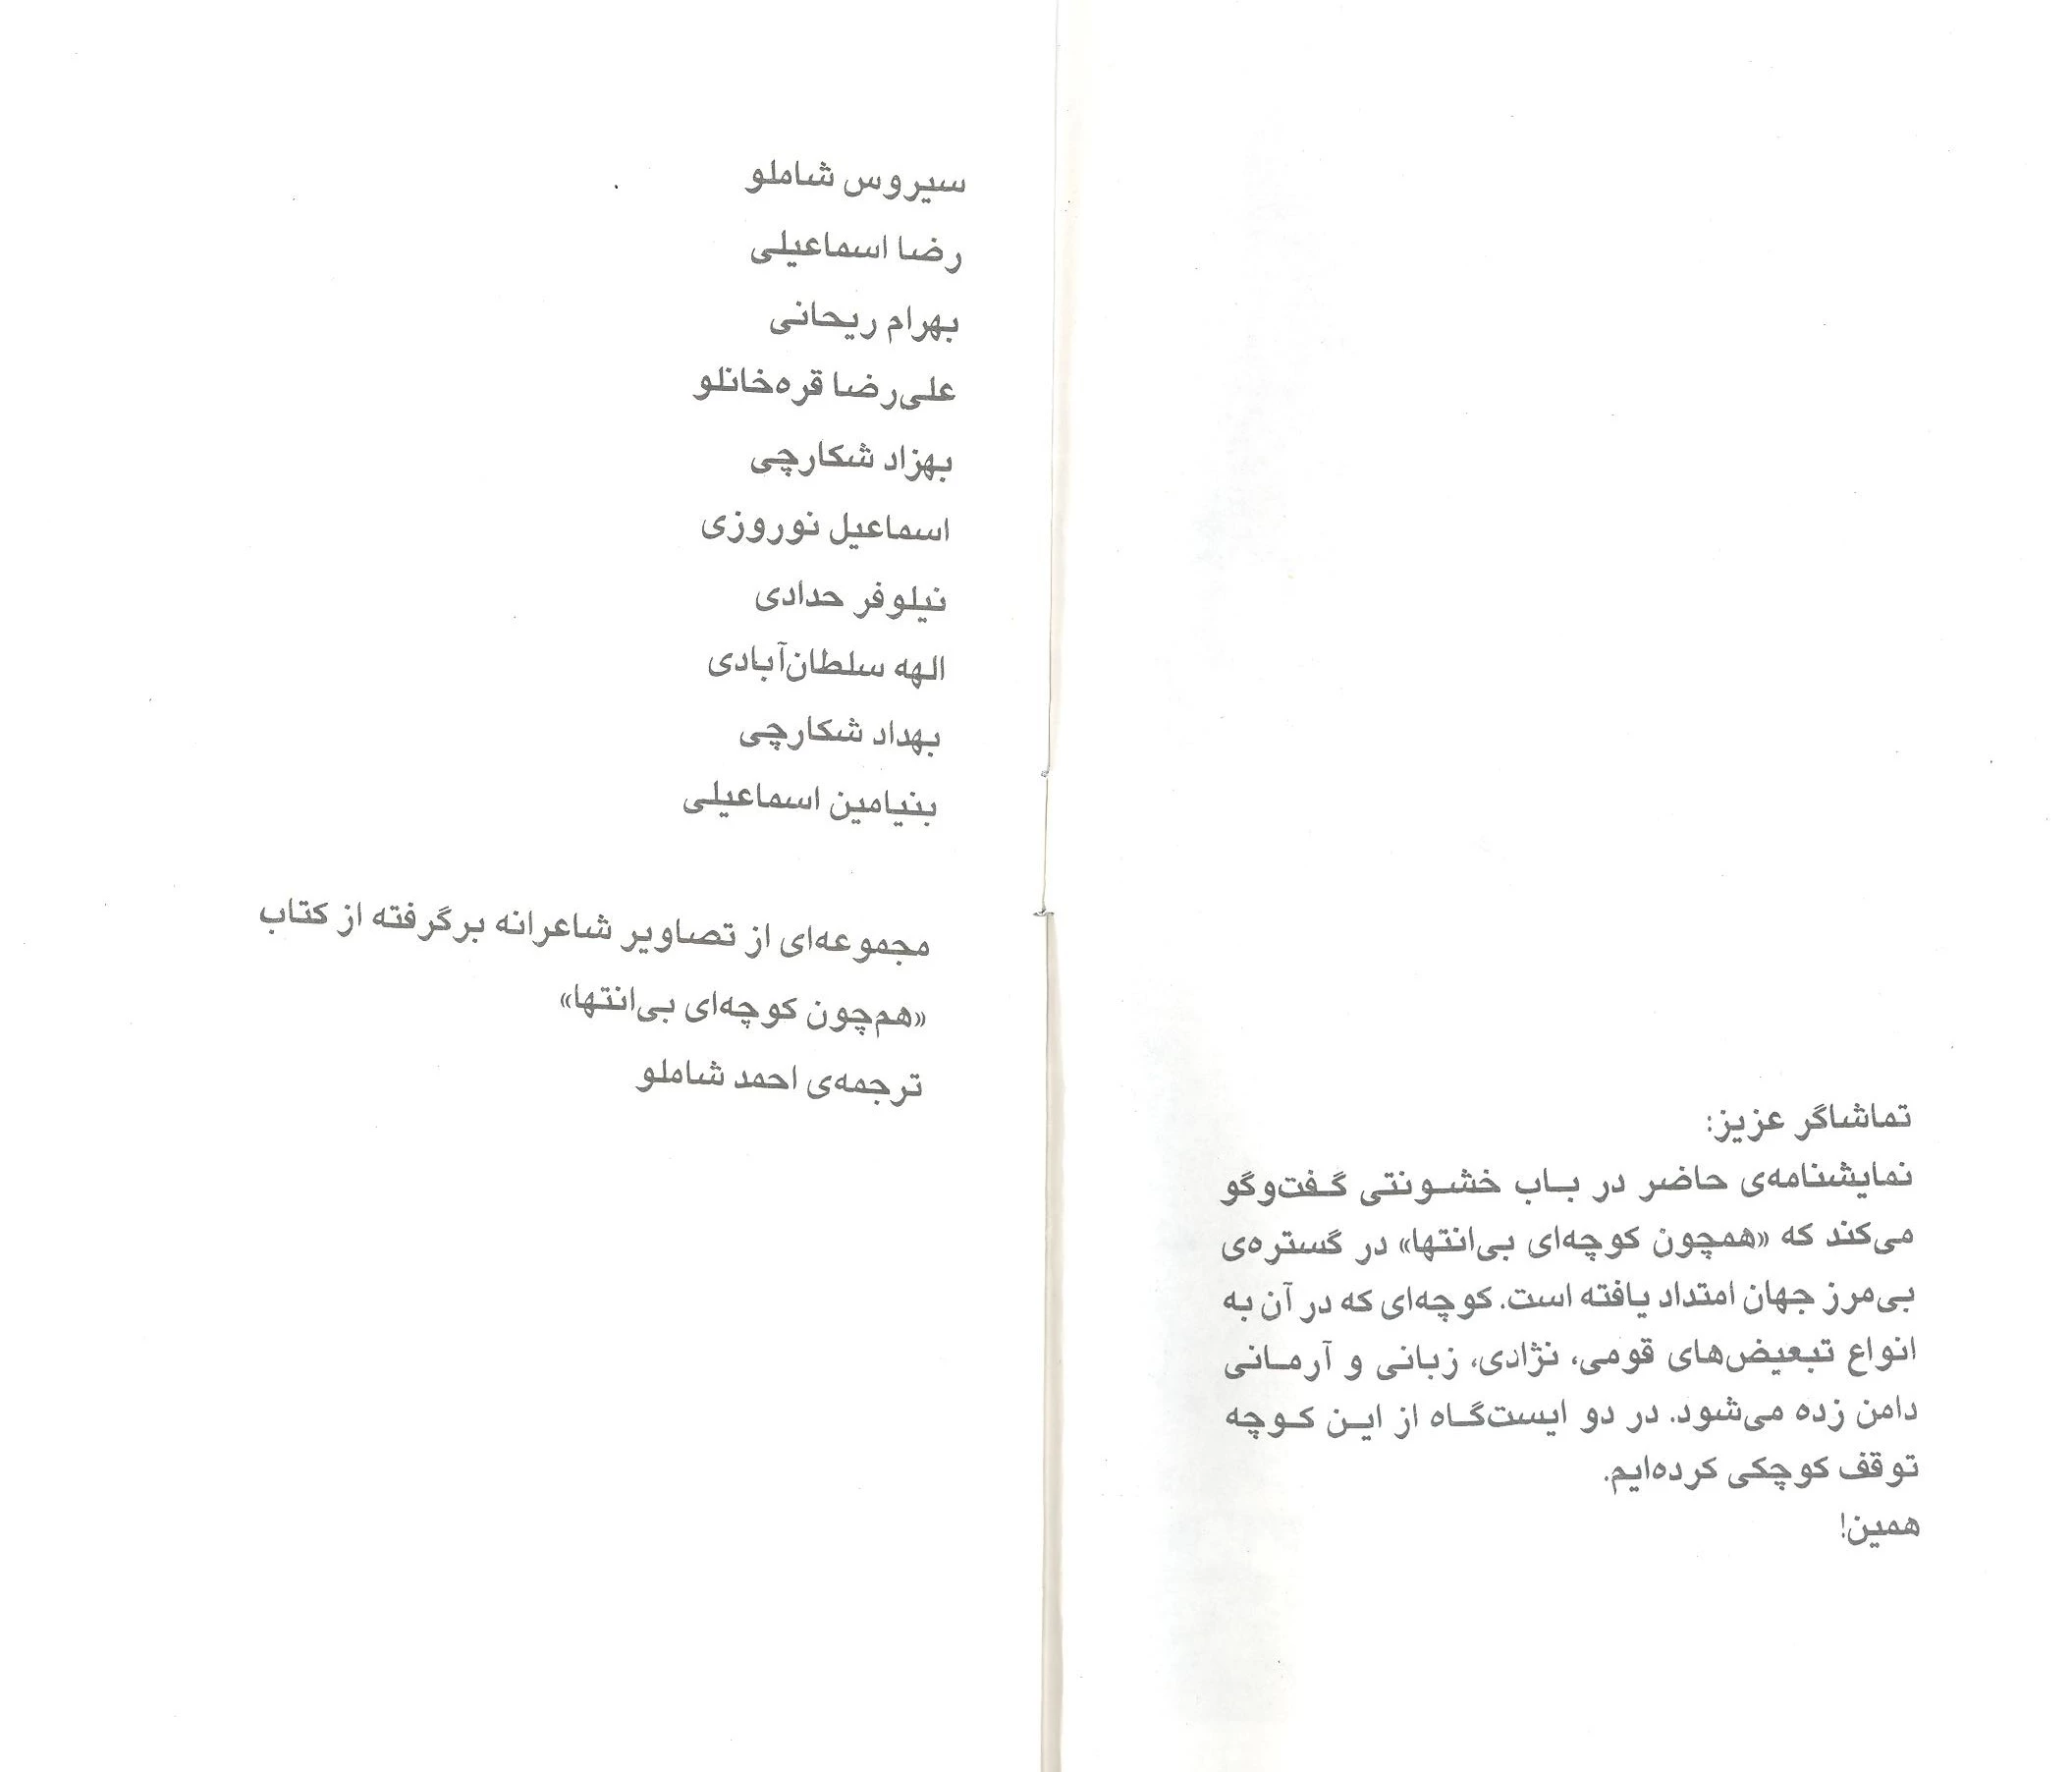 تماشاگر عزیز:
نمایشنامه‌ی حاضر در بـاب خشـونتی گـفت‌وگو
می‌کند که «همچون کوچه‌ای بی‌انتها» در گستره‌ی
بی‌مرز جهان امتداد یافته است. کوچه‌ای که در آن به
انواع تبعیض‌های قومی، نژادی، زبانی و آرمـانی
دامن زده می‌شود. در دو ایست‌گـاه از ایـن کـوچه
توقف کوچکی کرده‌ایم.
همین!
سیروس شاملو
رضا اسماعیلی
بهرام ریحانی
علی‌رضا قره‌خانلو
بهزاد شکارچی
اسماعیل نوروزی
نیلوفر حدادی
الهه سلطان‌آبادی
بهداد شکارچی
بنیامین اسماعیلی
مجموعه‌ای از تصاویر شاعرانه برگرفته از کتاب
«هم‌چون کوچه‌ای بی‌انتها»
ترجمه‌ی احمد شاملو